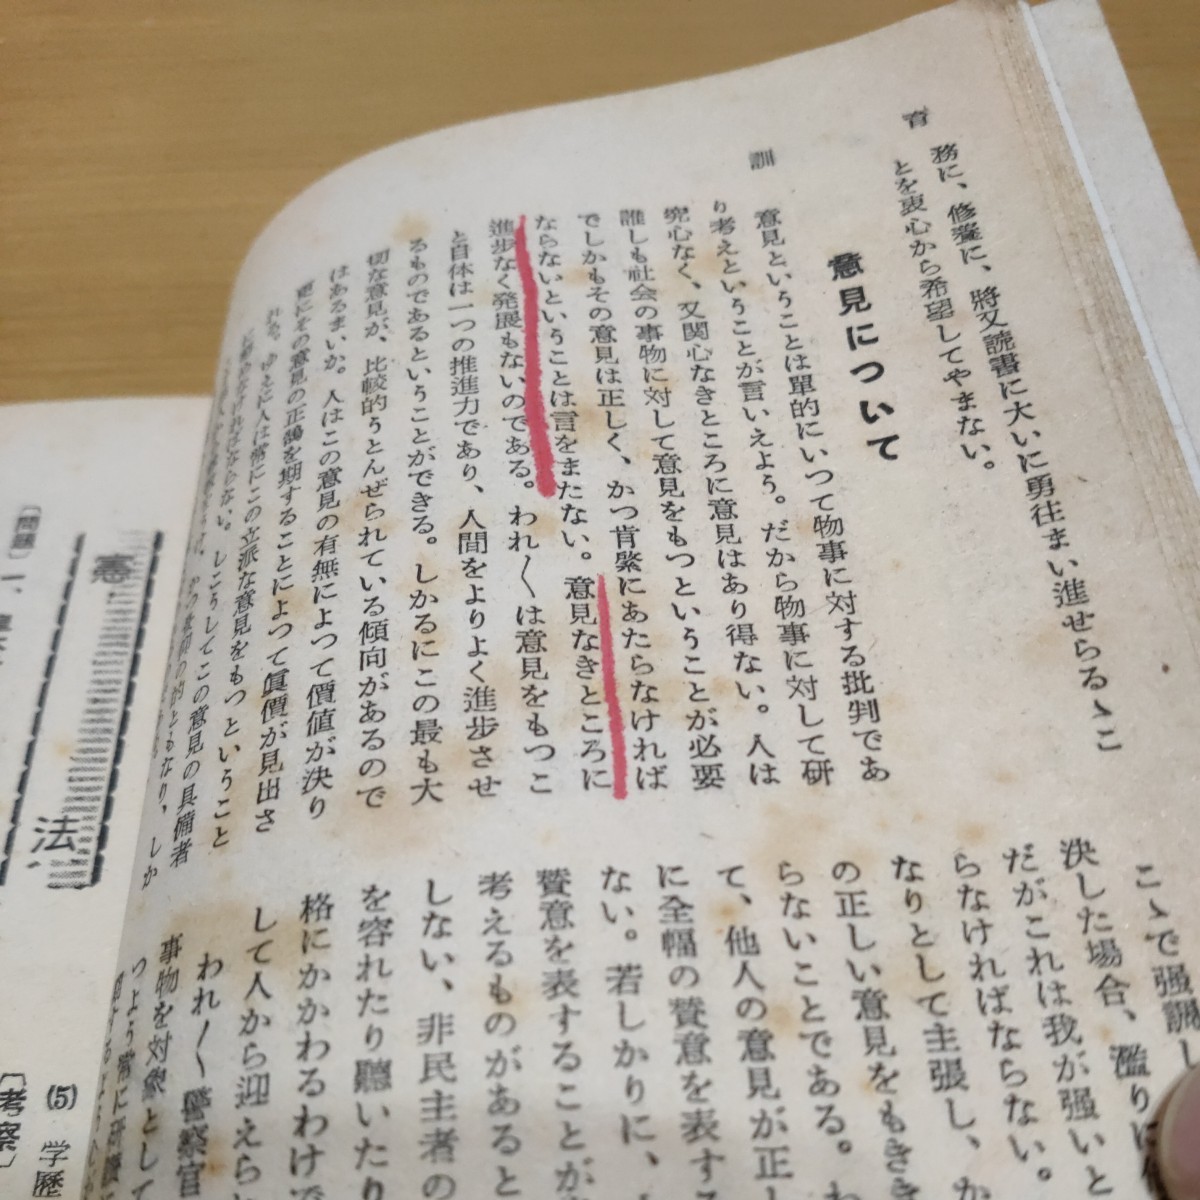 育
訓
務に、修養に、將又読書に大いに勇往まい進せらるゝこ
とを衷心から希望してやまない。
意見について
意見ということは單的にいつて物事に対する批判であ
り考えということが言いえよう。だから物事に対して研
究心なく、又関心なきところに意見はあり得ない。人は
誰しも社会の事物に対して意見をもつということが必要
でしかもその意見は正しく、かつ肯綮にあたらなければ
ならないということは言をまたない。意見なきところに
進歩なく発展もないのである。われ〱は意見をもつこ
と自体は一つの推進力であり、人間をよりよく進歩させ
るものであるということができる。しかるにこの最も大
切な意見が、比較的うとんぜられている傾向があるので
はあるまいか。人はこの意見の有無によつて價値が決り
更にその意見の正鵠を期することによつて眞價が見出さ
れる。ゆえに人は常にこの立派な意見をもつということ
なければならない。しこうしてこの意見の具備者
的ともなり、しか
こゝで强調し
決した場合、濫りに
だがこれは我が强いと
らなければならない。
なりとして主張し、か
の正しい意見をもきき
らないことである。わ
て、他人の意見が正し
に全幅の賛意を表する
ない。若しかりに、
賛意を表することが
考えるものがあると
しない、非民主者の
を容れたり聽いたり
格にかかわるわけで
して人から迎えら
われ〱警察官
事物を対象として
つよう常に研
憲
法
〔問題〕一、
(5) 学歷
〔考察〕